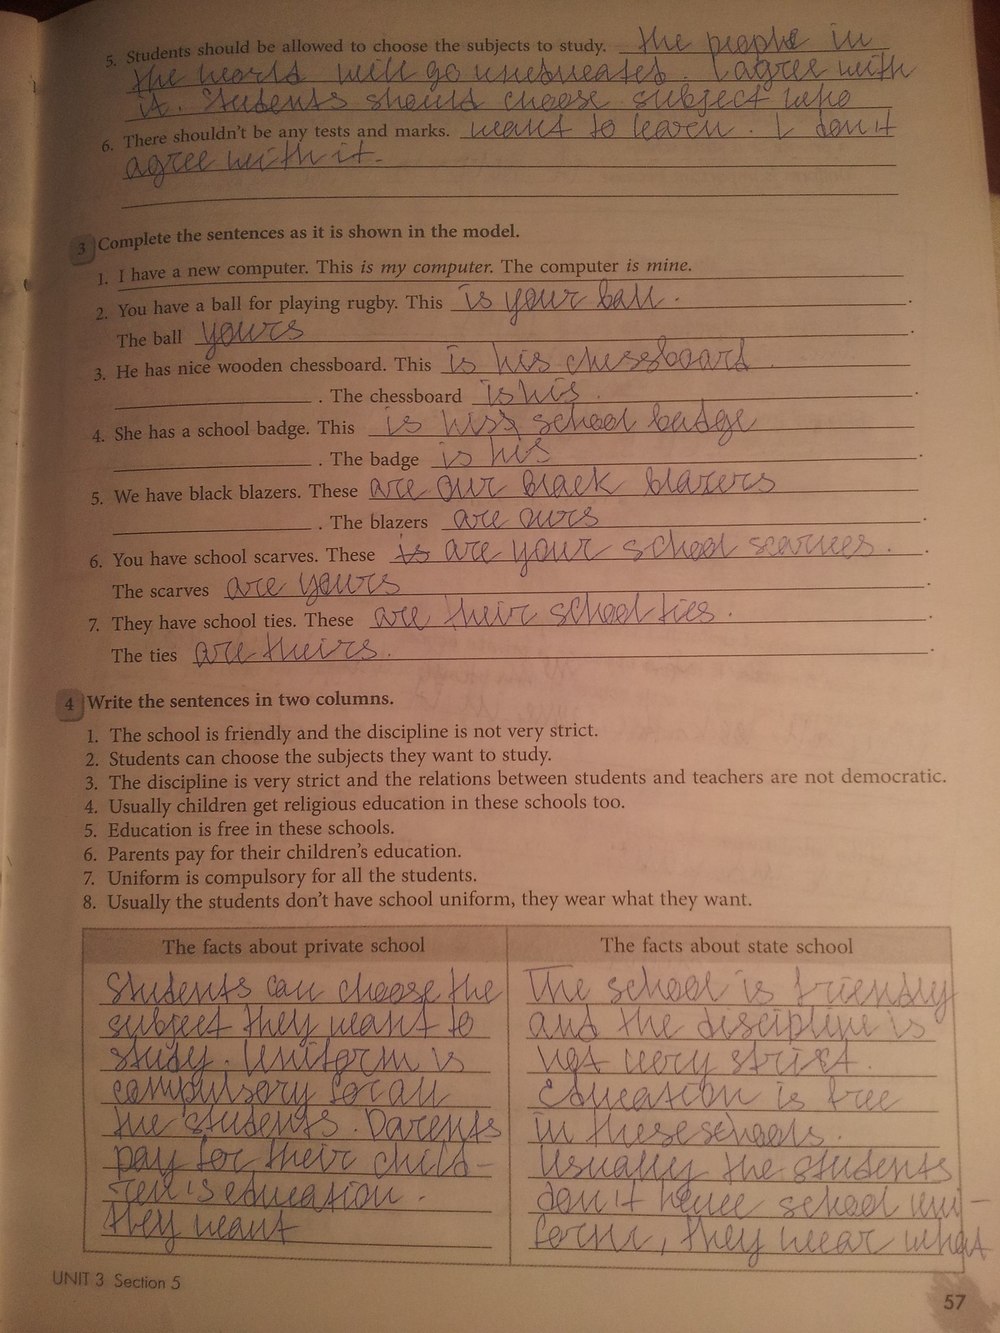 5. Students should be allowed to choose the subjects to study. the people in
the world will go uneducated. I agree with
it. Students should choose subject who
6. There shouldn't be any tests and marks. want to learn. I don't
agree with it.
3 Complete the sentences as it is shown in the model.
1. I have a new computer. This is my computer. The computer is mine.
2. You have a ball for playing rugby. This is your ball.
The ball yours
3. He has nice wooden chessboard. This is his chessboard.
. The chessboard is his.
4. She has a school badge. This is his school badge
. The badge is his.
5. We have black blazers. These are our black blazers
. The blazers are ours.
6. You have school scarves. These is are your school scarves.
The scarves are yours.
7. They have school ties. These are their school ties.
The ties are theirs.
4 Write the sentences in two columns.
1. The school is friendly and the discipline is not very strict.
2. Students can choose the subjects they want to study.
3. The discipline is very strict and the relations between students and teachers are not democratic.
4. Usually children get religious education in these schools too.
5. Education is free in these schools.
6. Parents pay for their children's education.
7. Uniform is compulsory for all the students.
8. Usually the students don't have school uniform, they wear what they want.
The facts about private school
Students can choose the
subject they want to
study. Uniform is
compulsory for all
the students. Parents
pay for their child-
ren's education.
they want
The facts about state school
The school is friendly
and the discipline is
not very strict.
Education is free
in these schools.
Usually the students
don't have school uni-
form, they wear what
UNIT 3 Section 5
57